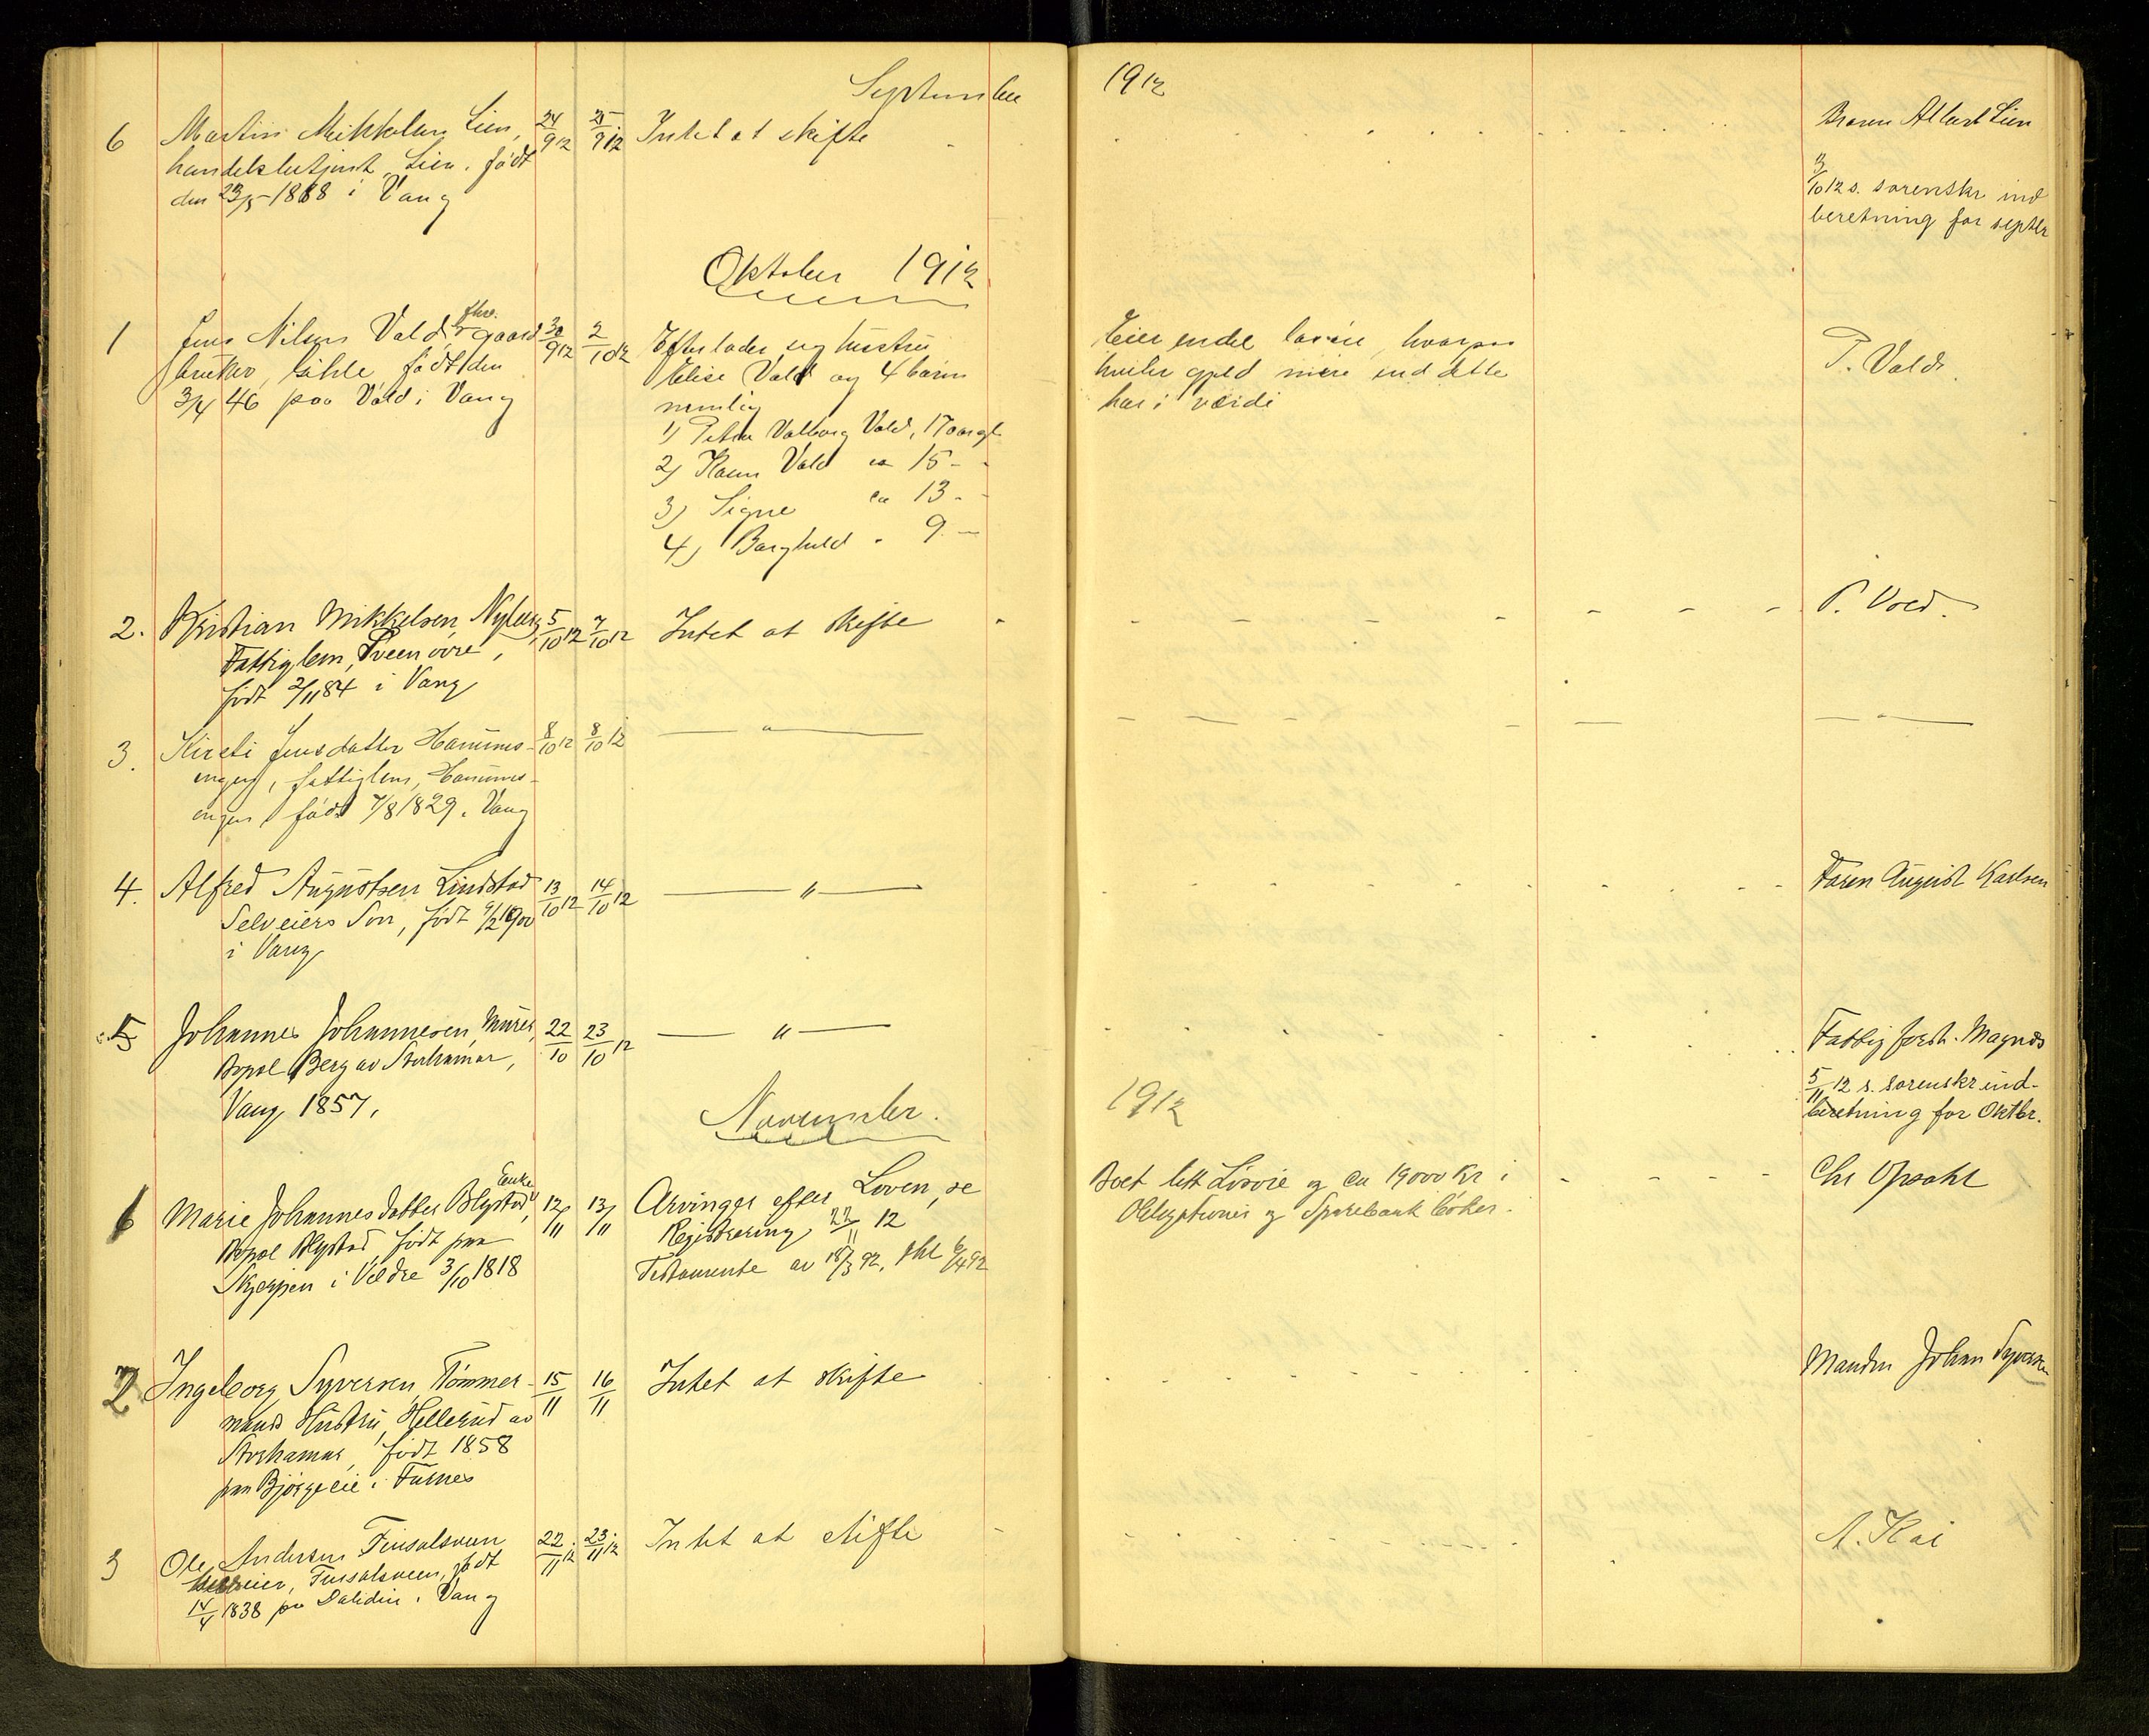 September 1912
6 Martin Mikkelsen Lien, 24/9 12 25/9 12 Intet at skifte Broren Albert Lien
handelsbetjent, Lien, født
den 23/5 1868 i Vang
3/10 12 s. sorenskr ind
beretning for septbr
Oktober 1912
1 Jens Nilsen Vold, fhv. gaard 30/9 12 2/10 12 Efterlader sig hustru
bruker, født den
3/4 46 paa Vold i Vang
Elise Vold og 4 barn
nemlig
1) Petra Valborg Vold, 17 aar gl
2) Vold ca 15 - -
3) Signe ca 13 - -
4) Borghild " 9 -
Eier endel løsøre, hvorpaa
hviler gjeld mere end dette
har i værdi
P. Vold.
2. Kristian Mikkelsen Nyberg 5/10 12 7/10 12 Intet at skifte - - - - P. Vold.
Fattiglem, Sveen øvre,
født 2/11 84 i Vang
3. Kirsti Jensdatter Hommes- 8/10 12 8/10 12 — " — — " —
engen, fattiglem, Hommes-
engen født 7/8 1829 i Vang
4. Alfred Augustsen Lindstad 13/10 12 14/10 12 — " — Faren August Karlsen
Selveiers Søn, født 9/2 1900
i Vang
5 Johannes Johannesen, Murer, 22/10 23/10 12 — " — Fattigforst. Magnus
Bopæl Berg av Storhamar,
Vang 1857,
5/11 12 s. sorenskr ind-
beretning for Oktbr.
November. 1912
1 Marie Johannesdatter Blystad, Enke 12/11 13/11 Arvinger efter Loven, se
Bopæl Blystad, født paa
Skjerpen i Veldre 3/10 1818
Registrering 22/11 12
Testamente av 18/3 92, 6/4 92
Boet litt Løsøre og ca 19000 Kr i
Obligationer og Sparebank bøker.
Chr Opsahl
2 Ingeborg Syversen, Tømmer- 15/11 16/11 Intet at skifte Manden Johan Syversen
mands Hustru, Hellerud av
Storhamar, født 1858
paa Bjørgeeie i Furnes
3 Ole Andersen Finsalsveen 22/11 12 23/11 12 Intet at skifte A. Kai
Selveier, Finsalsveen, født
14/4 1838 paa i Vang